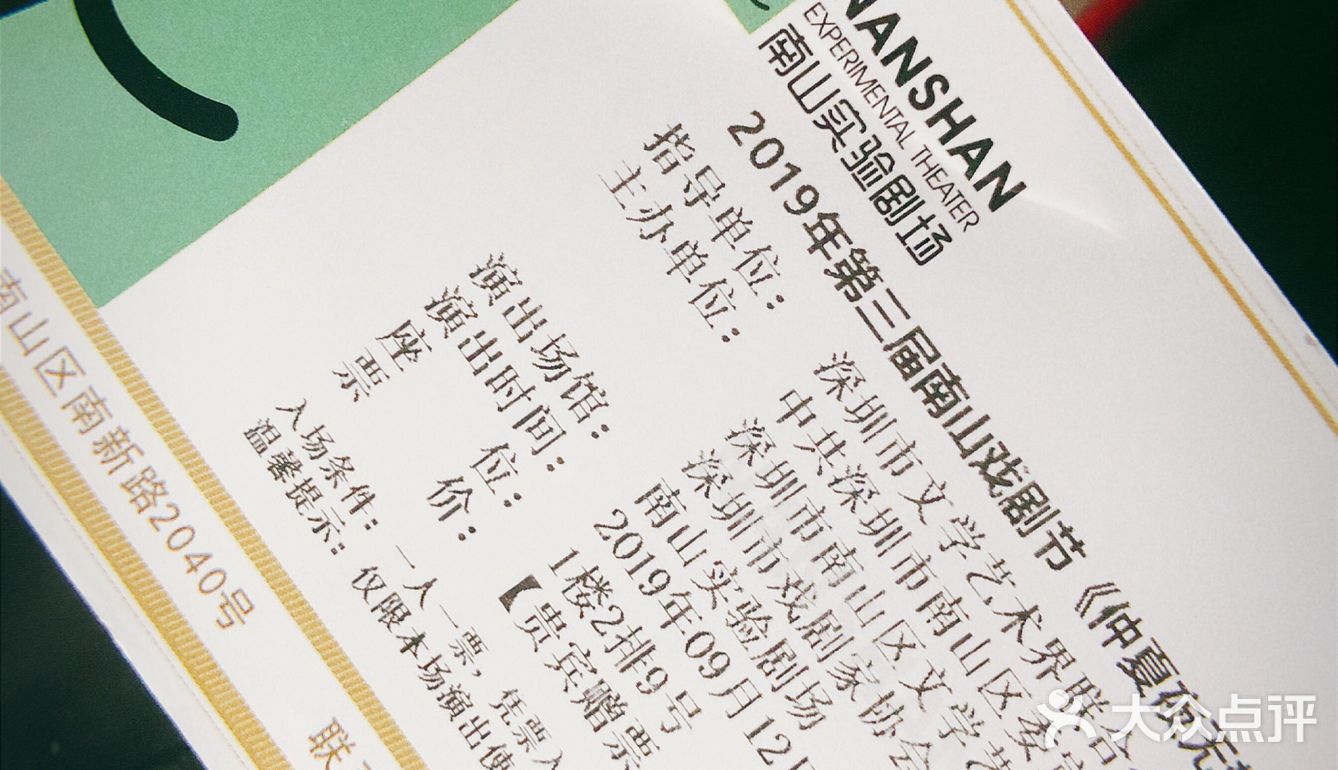 NANSHAN
EXPERIMENTAL THEATER
南山实验剧场
2019年第三届南山戏剧节《仲夏夜无
指导单位：深圳市文学艺术界联合
主办单位：中共深圳市南山区委
深圳市南山区文学艺
深圳市戏剧家协会
演出场馆：南山实验剧场
演出时间：2019年09月12日
座位：1楼2排9号
票价：【贵宾赠票
入场条件：一人一票，凭票入
温馨提示：仅限本场演出使
南山区南新路2040号
联
大众点评